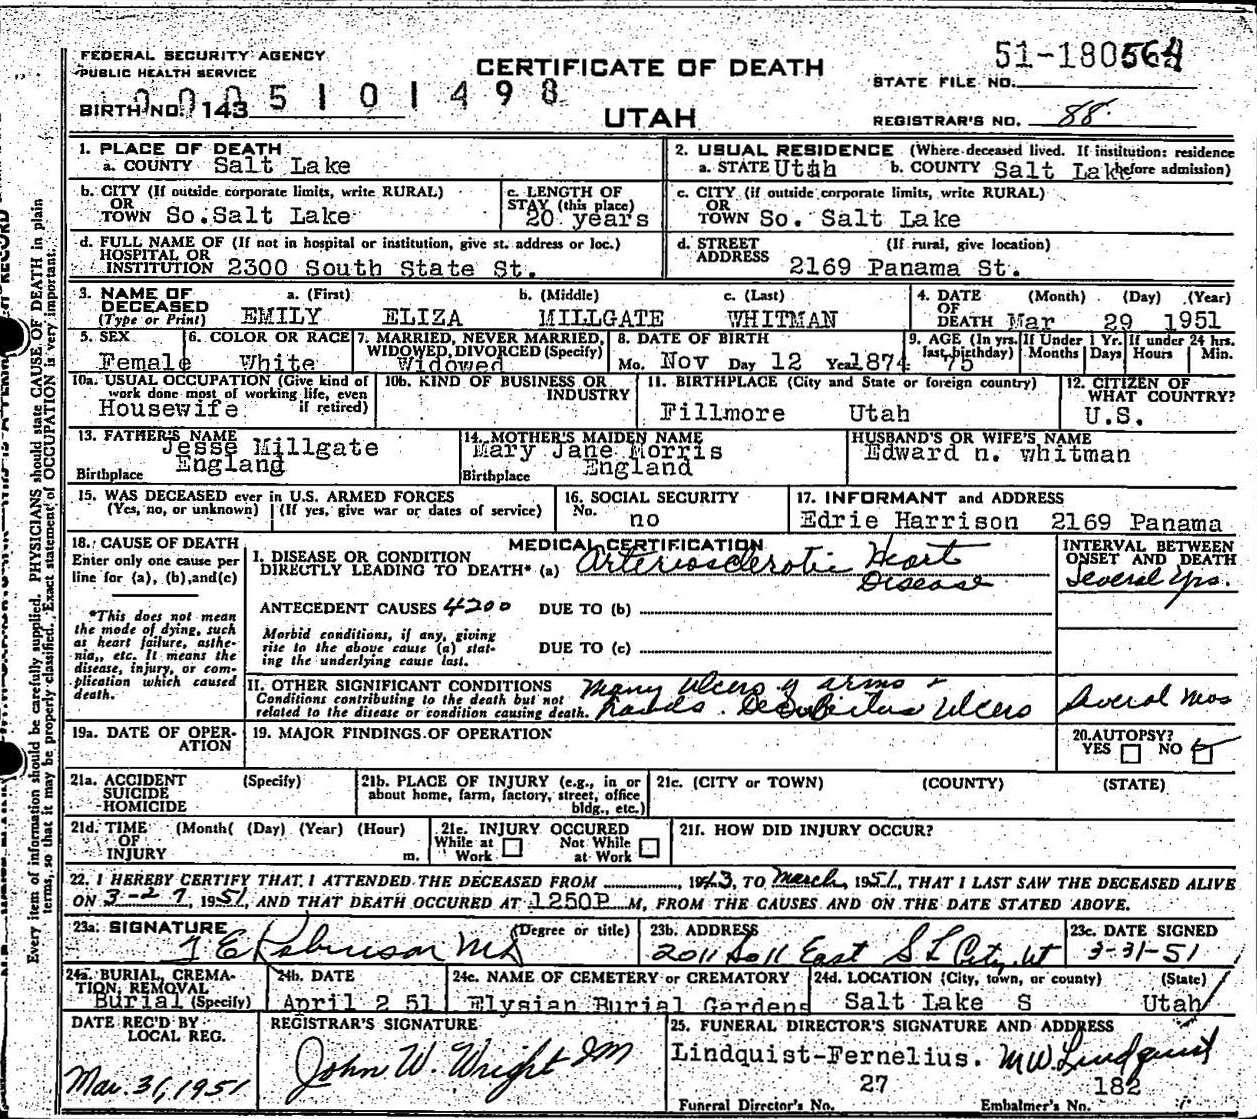 51-180564
FEDERAL SECURITY AGENCY
PUBLIC HEALTH SERVICE
CERTIFICATE OF DEATH
STATE FILE NO.
BIRTH NO. 143
0005101498
UTAH
REGISTRAR'S NO. 88
1. PLACE OF DEATH
a. COUNTY Salt Lake
2. USUAL RESIDENCE (Where deceased lived. If institution: residence before admission)
a. STATE Utah b. COUNTY Salt Lake
b. CITY (If outside corporate limits, write RURAL)
OR
TOWN So.Salt Lake
c. LENGTH OF
STAY (this place)
20 years
c. CITY (if outside corporate limits, write RURAL)
OR
TOWN So. Salt Lake
d. FULL NAME OF (If not in hospital or institution, give st. address or loc.)
HOSPITAL OR
INSTITUTION 2300 South State St.
d. STREET (If rural, give location)
ADDRESS 2169 Panama St.
3. NAME OF DECEASED
(Type or Print)
a. (First) b. (Middle) c. (Last)
EMILY ELIZA MILLGATE WHITMAN
4. DATE OF DEATH (Month) (Day) (Year)
Mar 29 1951
5. SEX
Female
6. COLOR OR RACE
White
7. MARRIED, NEVER MARRIED,
WIDOWED, DIVORCED (Specify)
Widowed
8. DATE OF BIRTH
Mo. Nov Day 12 Year 1874
9. AGE (In yrs. last birthday) 75
If Under 1 Yr. Months Days
If under 24 hrs. Hours Min.
10a. USUAL OCCUPATION (Give kind of
work done most of working life, even
if retired)
Housewife
10b. KIND OF BUSINESS OR
INDUSTRY
11. BIRTHPLACE (City and State or foreign country)
Fillmore Utah
12. CITIZEN OF
WHAT COUNTRY?
U.S.
13. FATHER'S NAME
Jesse Millgate
Birthplace England
14. MOTHER'S MAIDEN NAME
Mary Jane Morris
Birthplace England
HUSBAND'S OR WIFE'S NAME
Edward n. whitman
15. WAS DECEASED ever in U.S. ARMED FORCES
(Yes, no, or unknown) (If yes, give war or dates of service)
16. SOCIAL SECURITY
No. no
17. INFORMANT and ADDRESS
Edrie Harrison 2169 Panama
18. CAUSE OF DEATH
Enter only one cause per
line for (a), (b),and(c)
*This does not mean
the mode of dying, such
as heart failure, asthe-
nia, etc. It means the
disease, injury, or com-
plication which caused
death.
MEDICAL CERTIFICATION
I. DISEASE OR CONDITION
DIRECTLY LEADING TO DEATH* (a) Arteriosclerotic Heart
Disease
ANTECEDENT CAUSES 4200 DUE TO (b)
Morbid conditions, if any, giving
rise to the above cause (a) stat-
ing the underlying cause last.
DUE TO (c)
INTERVAL BETWEEN
ONSET AND DEATH
Several Yrs.
II. OTHER SIGNIFICANT CONDITIONS
Conditions contributing to the death but not
related to the disease or condition causing death.
Many Ulcers of arms +
hands. Decubitus Ulcers
Several mos
19a. DATE OF OPER-
ATION
19. MAJOR FINDINGS OF OPERATION
20. AUTOPSY?
YES NO
21a. ACCIDENT (Specify)
SUICIDE
HOMICIDE
21b. PLACE OF INJURY (e.g., in or
about home, farm, factory, street, office
bldg., etc.)
21c. (CITY or TOWN) (COUNTY) (STATE)
21d. TIME (Month( (Day) (Year) (Hour)
OF
INJURY m.
21e. INJURY OCCURED
While at Work
Not While at Work
21f. HOW DID INJURY OCCUR?
22. I HEREBY CERTIFY THAT I ATTENDED THE DECEASED FROM , 1943, TO March, 1951, THAT I LAST SAW THE DECEASED ALIVE
ON 3-29, 1951, AND THAT DEATH OCCURED AT 1250P M, FROM THE CAUSES AND ON THE DATE STATED ABOVE.
23a. SIGNATURE (Degree or title)
Robinson MD
23b. ADDRESS
2011 So 11 East S L City, Ut
23c. DATE SIGNED
3-31-51
24a. BURIAL, CREMA-
TION, REMOVAL
Burial (Specify)
24b. DATE
April 2 51
24c. NAME OF CEMETERY or CREMATORY
Elysian Burial Gardens
24d. LOCATION (City, town, or county) (State)
Salt Lake S Utah
DATE REC'D BY
LOCAL REG.
Mar. 31, 1951
REGISTRAR'S SIGNATURE
John W. Wright
25. FUNERAL DIRECTOR'S SIGNATURE AND ADDRESS
Lindquist-Fernelius. M W Lindquist
27 182
Funeral Director's No. Embalmer's No.
Every item of information should be carefully supplied. PHYSICIANS should state CAUSE OF DEATH in plain
terms, so that it may be properly classified. Exact statement of OCCUPATION is very important.